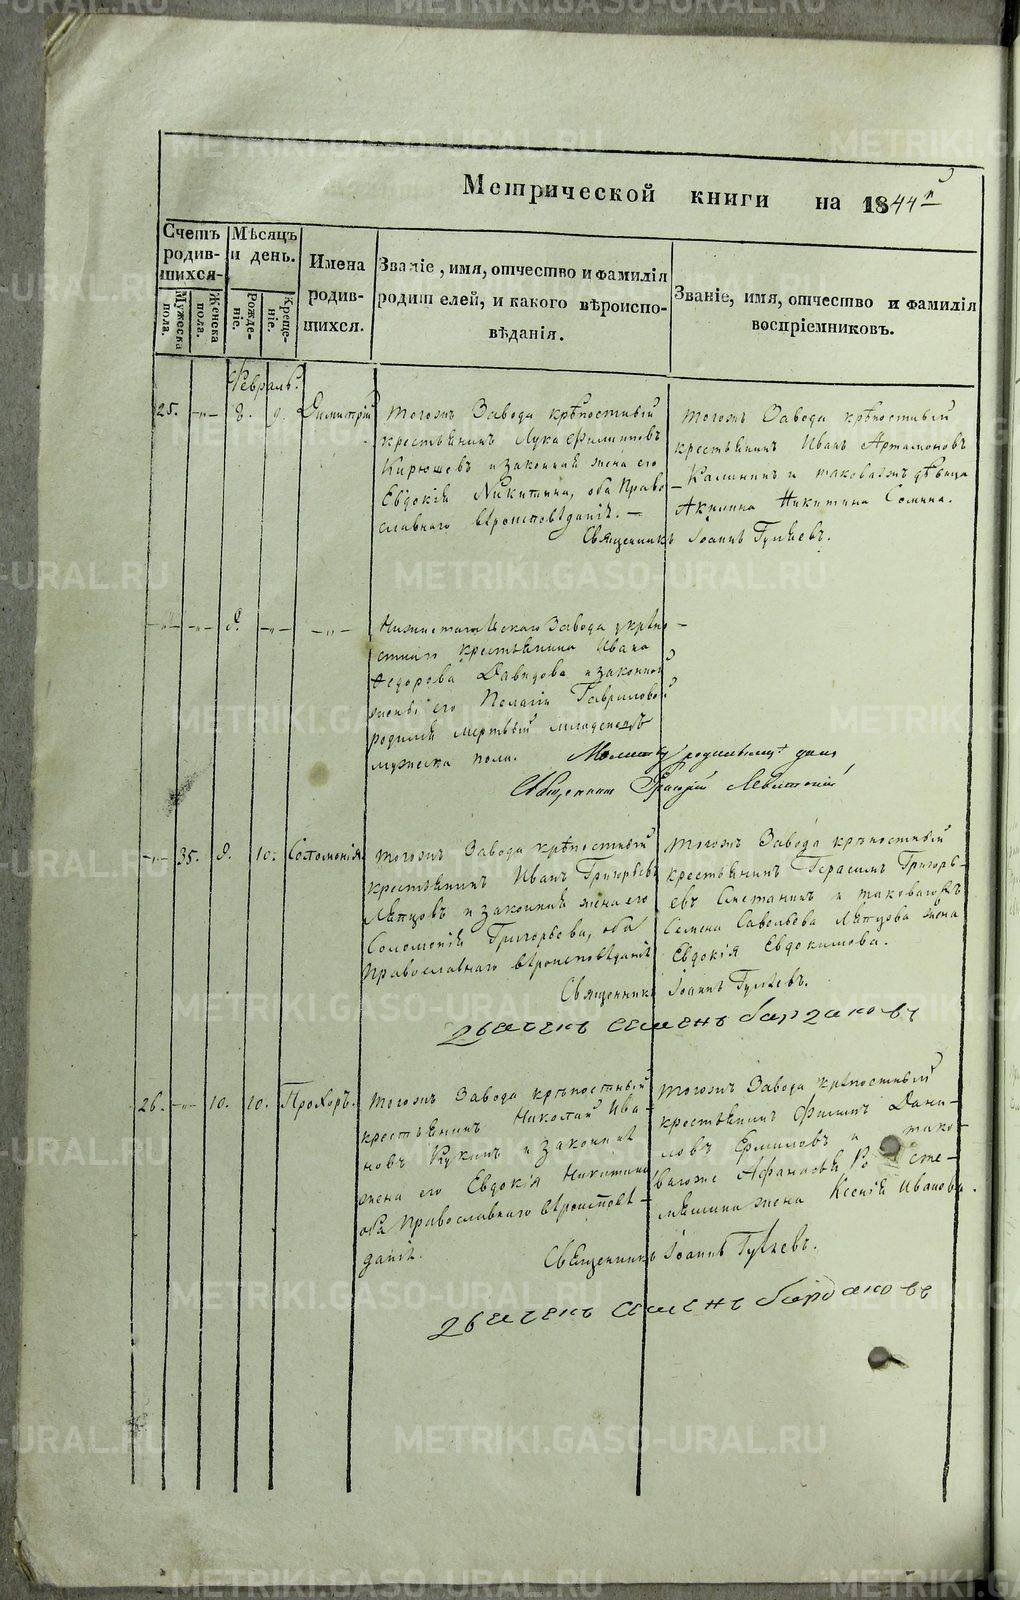 Метрической книги на 1844й
Счетъ родив-шихся.
Мѣсяцъ и день.
Имена родив-шихся.
Званіе, имя, отчество и фамилія родителей, и какого вѣроиспо-вѣданія.
Званіе, имя, отчество и фамилія воспріемниковъ.
Мужеска пола.
Женска пола.
Рожде-ніе.
Креще-ніе.
Февраль.
25. —„— 8. 9. Димитрій
тогожъ Завода крѣпостный
крестьянинъ Лука Филиповъ
Кирюшевъ и законная жена его
Евдокія Никитина, оба Право
славнаго вѣроисповѣданія. —
тогожъ Завода крѣпостный
крестьянинъ Иванъ Артамоновъ
Калининъ и таковагожъ дѣвица
Акилина Никитина Сомина.
Священникъ Іоаннъ Гуляевъ.
—„— —„— 9. —„— —„—
Нижнетагильскаго Завода у крѣпо —
стнаго крестьянина Ивана
Ѳедорова Давидова и законной
жены его Пелагіи Гавриловой
родился мертвый младенецъ
мужеска пола.
Молитву родильницѣ далъ
Священникъ Григорій Левитскій
—„— 35. 9. 10. Соломонія
тогожъ Завода крѣпостный
крестьянинъ Иванъ Григорьевъ
Ляпцовъ и законная жена его
Соломонія Григорьева, оба
Православнаго вѣроисповѣданія
тогожъ Завода крѣпостный
крестьянинъ Герасимъ Григорь-
евъ Сметанинъ и таковагожъ
Семена Савельева Ляпцова жена
Евдокія Евдокимова.
Священникъ Іоаннъ Гуляевъ.
семенъ
26. —„— 10. 10. Прохоръ.
тогожъ Завода крѣпостный
крестьянинъ Николай Ива-
новъ Кукинъ и законная
жена его Евдокія Никитина
оба Православнаго вѣроисповѣ-
данія.
тогожъ Завода крѣпостный
крестьянинъ Филипъ Дани-
ловъ Ермиловъ и тако-
вагоже Афанасья
жена Ксенія Иванова.
Священникъ Іоаннъ Гуляевъ.
семенъ
METRIKI.GASO-URAL.RU